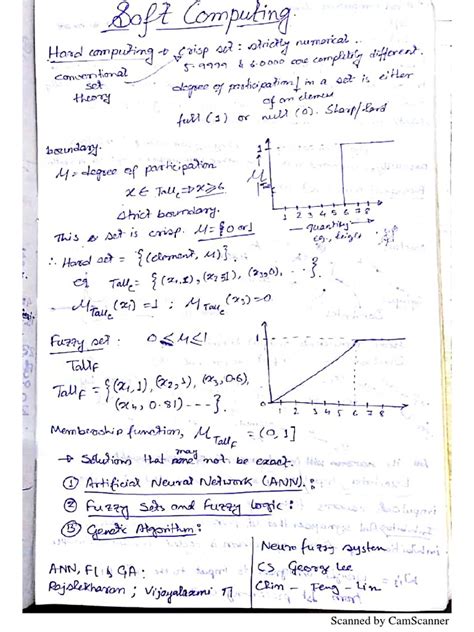 Soft Computing.
Hard computing → Crisp set : strictly numerical.
conventional set theory
5.9999 & 6.0000 are completely different.
degree of participation in a set is either
of an element
full (1) or null (0). Sharp/hard
boundary.
μ = degree of participation
x ∈ Tall_c ⇒ x ≥ 6
Strict boundary.
This set is crisp. μ = {0 or 1}
1
1 2 3 4 5 6 7 8
Quantity
eg., height
∴ Hard set = {(element, μ)}
eg Tall_c = {(x₁,1), (x₂,1), (x₃,0), ...}
μ_Tall_c (x₁) = 1 ; μ_Tall_c (x₃) = 0
Fuzzy set : 0 ≤ μ ≤ 1
Tall_F
Tall_F = {(x₁,1), (x₂,1), (x₃,0.6),
(x₄, 0.81) ----}.
1
0
1 2 3 4 5 6 7 8
Membership function, μ_Tall_F = (0,1]
→ Solutions that may not be exact.
① Artificial Neural Network (ANN) :
② Fuzzy Sets and Fuzzy Logic :
③ Genetic Algorithm :
ANN, FL & GA :
Rajslekharan ; Vijayalaxmi
Neuro fuzzy system
CS George Lee
Chin - Teng - Lin
Scanned by CamScanner